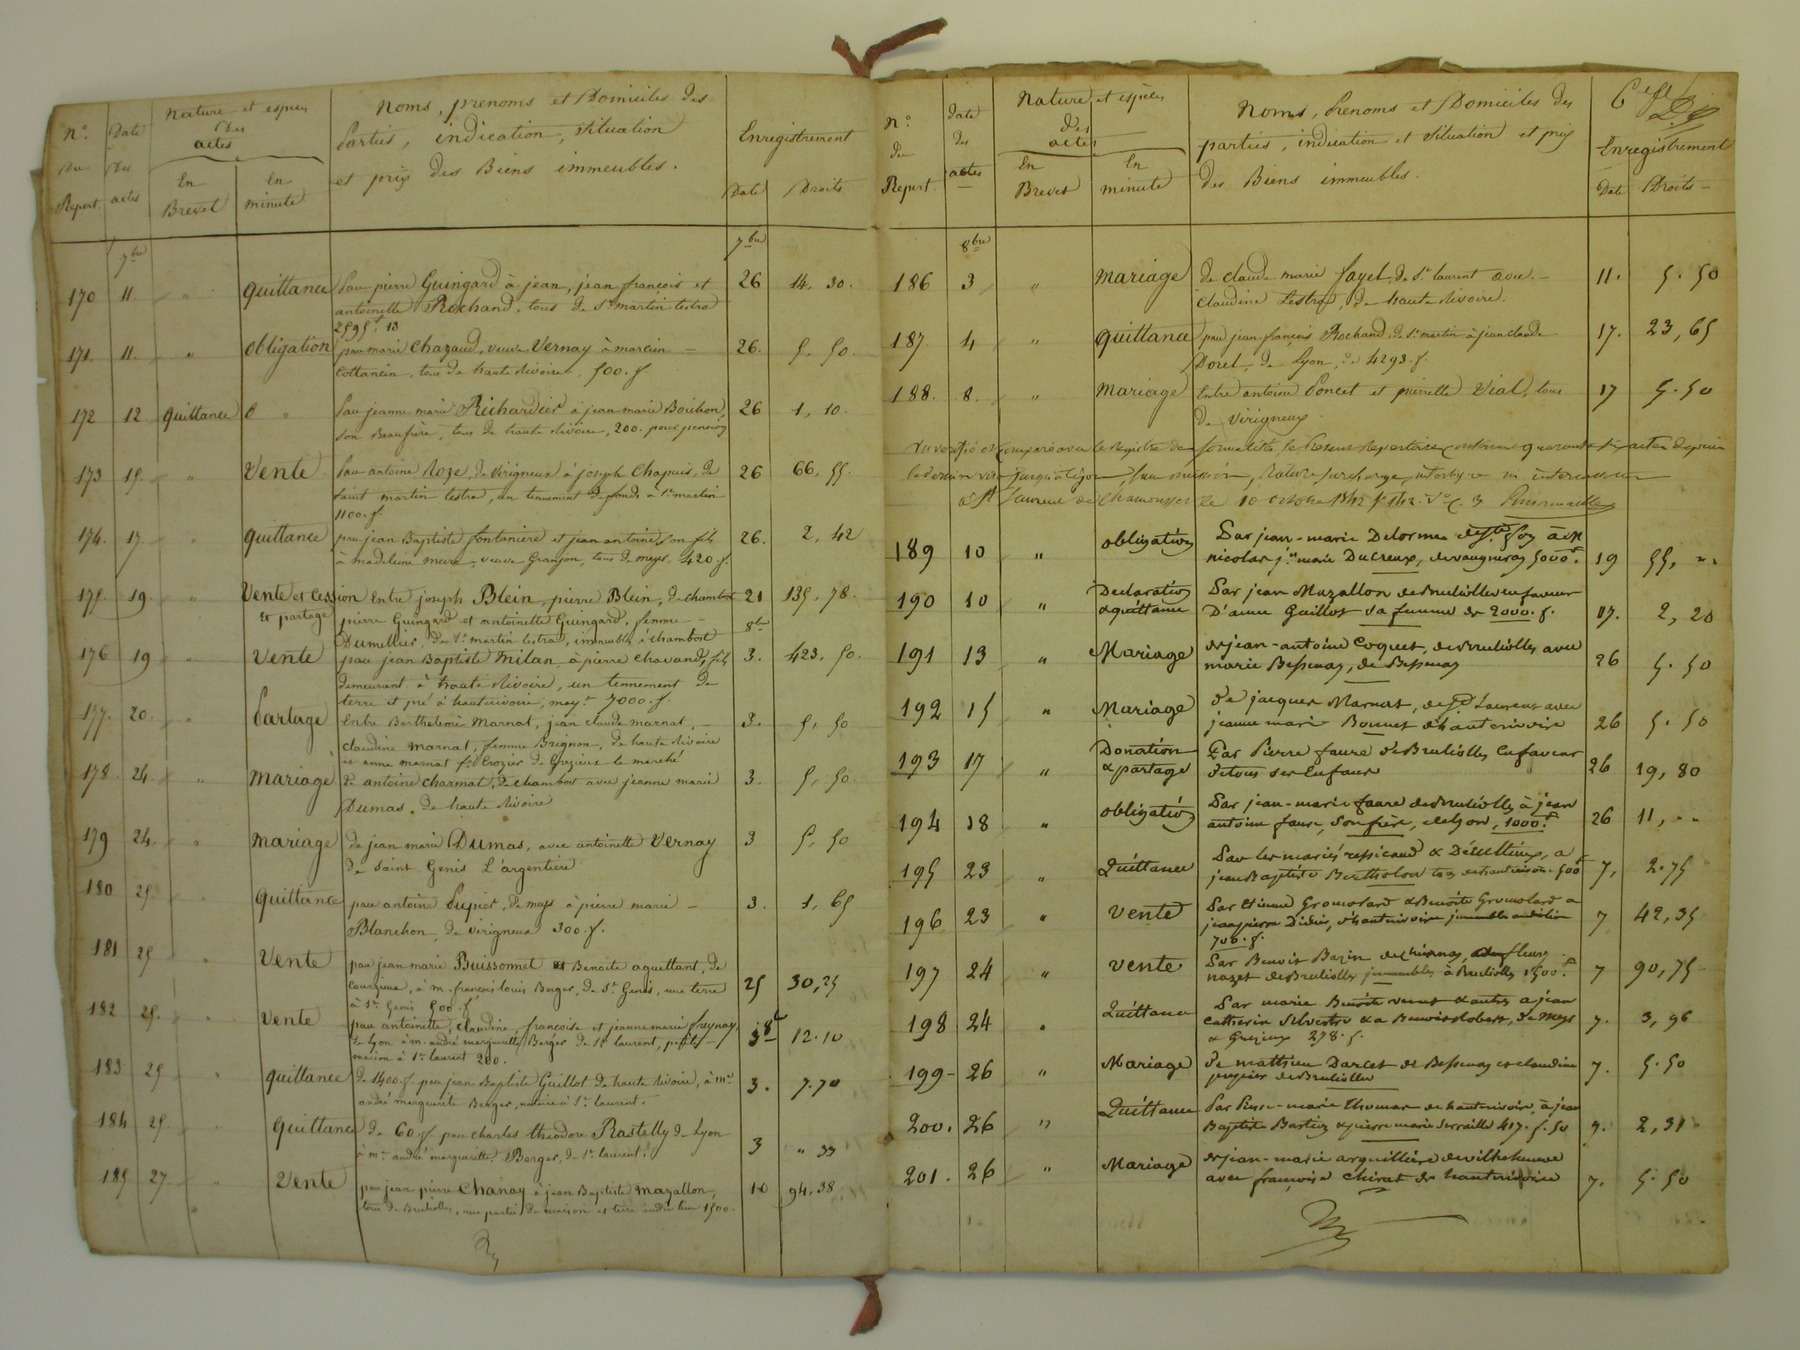 N.o Du Repert.
Date Des actes
Nature et espèces Des actes
En Brevet
En minute
Noms, prenoms et Domiciles des
Parties, indication, situation
et prix des Biens immeubles.
Enregistrement
Date Droits
7bre 7bre
170 11 " quittance par pierre Guingard à jean, jean françois et 26 14. 30.
antoinette Rochand, tous de St martin lestra
2595f. 13
171. 11. " obligation par marie Chazaud, veuve Vernay à 26. 5, 50.
Cottancin, tous de haute Rivoire, 500. f.
172 12 quittance " par jeanne marie Richardier à jean marie Bouchon, 26 1, 10.
son Beaufrère, tous de haute Rivoire, 200. pour pension
173 15. " Vente par antoine Roze, de virigneux à joseph Chapuis, de 26 66, 55.
saint martin lestra, un tennement de fonds à St martin
1100. f.
174. 17. " quittance par jean Baptiste fontaniere et jean antoine son fils 26. 2, 42
à madeleine veuve Granjon, tous de meys. 420. f.
175. 19. " Vente et Cession Entre joseph Blein, pierre Blein, de chambost 21 135, 78.
et partage pierre Guingard et antoinette Guingard, femme 8bre
Dumillier, de St martin lestra, immeubles à chambost
176 19 " Vente par jean Baptiste Milan à pierre Chavand, fils 3. 423, 50.
demeurant à haute Rivoire, un tennement de
terre et pré à hauterivoire, moyt 7000. f.
177. 20. " Partage Entre Barthelemi Marnat, jean claude marnat, 3. 5, 50
claudine marnat, femme Brignon, de haute Rivoire
et anne marnat fe Crozier de Grezieux le marché
178. 24. " mariage de antoine charmat, de chambost avec jeanne marie 3. 5, 50.
Dumas, de haute Rivoire
179 24. " mariage de jean marie Dumas, avec antoinette Vernay 3 5, 50
de Saint Genis L'argentière
180 25. " quittance par antoine Pupier, de meys à pierre marie 3. 1, 65
Blanchon, de virigneux 300. f.
181 25 " Vente par jean marie Buissonnet et Benoite aguettant, de 25 30, 25
Courzieux, à m. françois louis Berger, de St Genis, une terre
à St Genis 500. f.
182 25. " Vente par antoinette, claudine, françoise et jeanne marie freynay, 8e 3 12. 10
de Lyon à m. andré marguerite Berger de St laurent, petite
maison à St laurent 200.
183 25 " quittance de 1400. f. par jean Baptiste Guillot de haute Rivoire, à mr 3. 7. 70
andré marguerite Berger, notaire à St laurent.
184 25. " quittance de 60. f. par charles theodore Rastelly de Lyon 3 " 33
à mr andré marguerite Berger, de St laurent.
185 27. " Vente par jean pierre Chanay à jean Baptiste mazallon, 10 94, 38
tous de Brulliolles, une partie de maison et terre audit lieu 1500.
N.o du Repert.
date des actes
Nature et espèces des actes
En Brevet
En minute
Noms, Prenoms et Domiciles des
parties, indication et Situation et prix
des Biens immeubles.
Enregistrement
Date Droits
8bre
186 3 " mariage de claude marie fayel, de St laurent avec 11. 5. 50
claudine Lestra, de haute Rivoire.
187. 4 " quittance par jean françois Rochand, de St martin à jean claude 17. 23, 65
Dorel, de Lyon, de 4293. f.
188. 8. " mariage Entre antoine Poncet et pierrette Vial, tous 17 5. 50
de virigneux.
à St Laurent de Chamousset le 10 octobre 1842
189 10 " obligation Par jean-marie Delorme de Ste foy à 19 55, "
nicolas jn marie Ducreux, de vaugneray 5000f.
190 10 " Declaration Par jean Mazallon de Brulliolles en faveur 17. 2, 20
& quittance D'anne Guillot sa femme de 2000. f.
191 13 " Mariage de jean-antoine Coquet, de Brulliolles avec 26 5. 50
marie Bessenay, de Bessenay
192 15 " Mariage de jacques Marnat, de St Laurent avec 26 5. 50
jeanne marie Bonnet d'hauterivoire
193 17 " Donation Par Pierre faure de Brulliolles en faveur 26 19, 80
& partage de tous ses Enfans
194 18 " obligation Par jean-marie faure de Brulliolles à jean 26 11, "
antoine faure, son frère, de Lyon, 1000f.
195 23 " Quittance Par les mariés & à 7, 2. 75
jean Baptiste Bertholon tous d'hauterivoire. 500f
196 23 " Vente Par Etienne Gromolard & Benoite Gromolard à 7 42, 35
jean pierre Didier, d'hauterivoire immeubles audit lieu
700. f.
197 24 " Vente Par Benoit Bazin à fleury 7 90, 75
nazet de Brulliolles immeubles à Brulliolles 1500f.
198 24 " Quittance Par marie Benoite & autres à jean 7. 3, 96
Catherin Silvestre & à Benoit Robert, de Meys
& Grezieux 278. f.
199 26 " Mariage de mathieu Darcet de Bessenay et claudine 7. 5. 50
de Brulliolles
200. 26 " Quittance Par Pierre-marie Thomas de hauterivoire, à jean 7. 2, 31
Baptiste & pierre marie 417. f. 50
201. 26 " Mariage de jean-marie arquillière de villechenève 7. 5. 50
avec françoise Chirat de hauterivoire